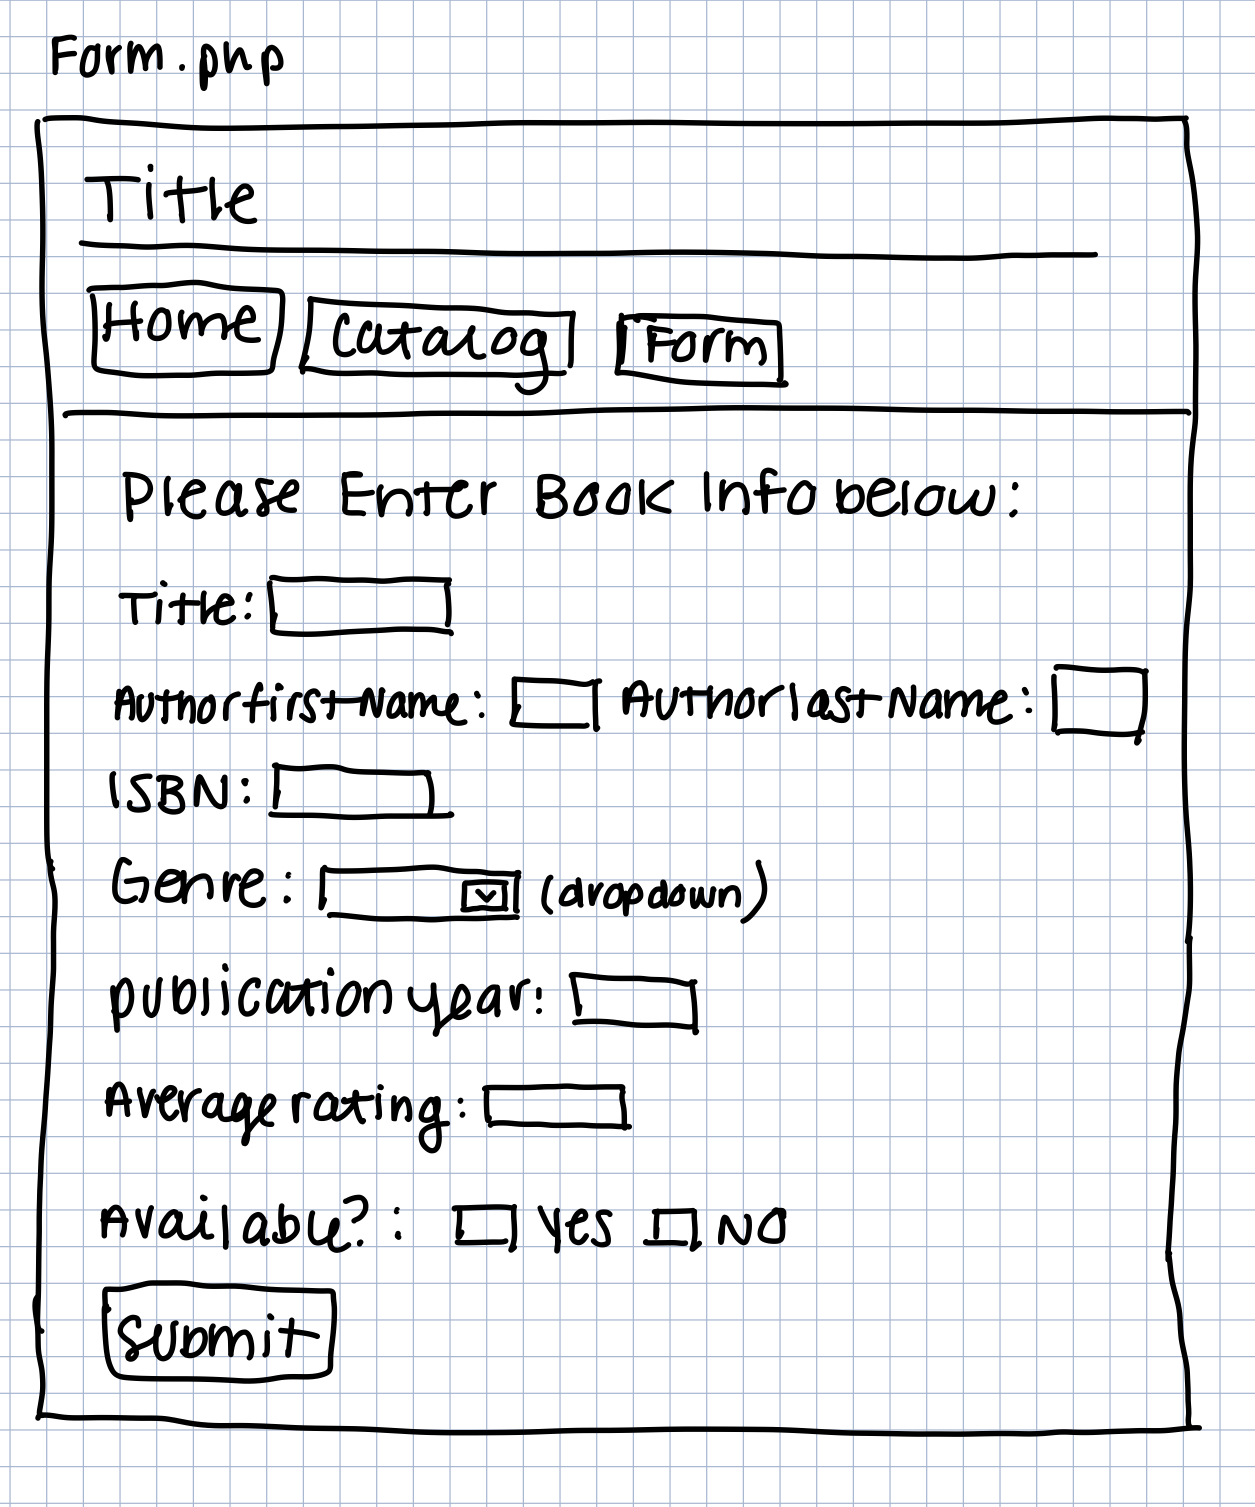 Form.php
Title
Home Catalog Form
Please Enter Book Info below:
Title:
Author first Name: Author last Name:
ISBN:
Genre: (dropdown)
publication year:
Average rating:
Available?: Yes NO
Submit